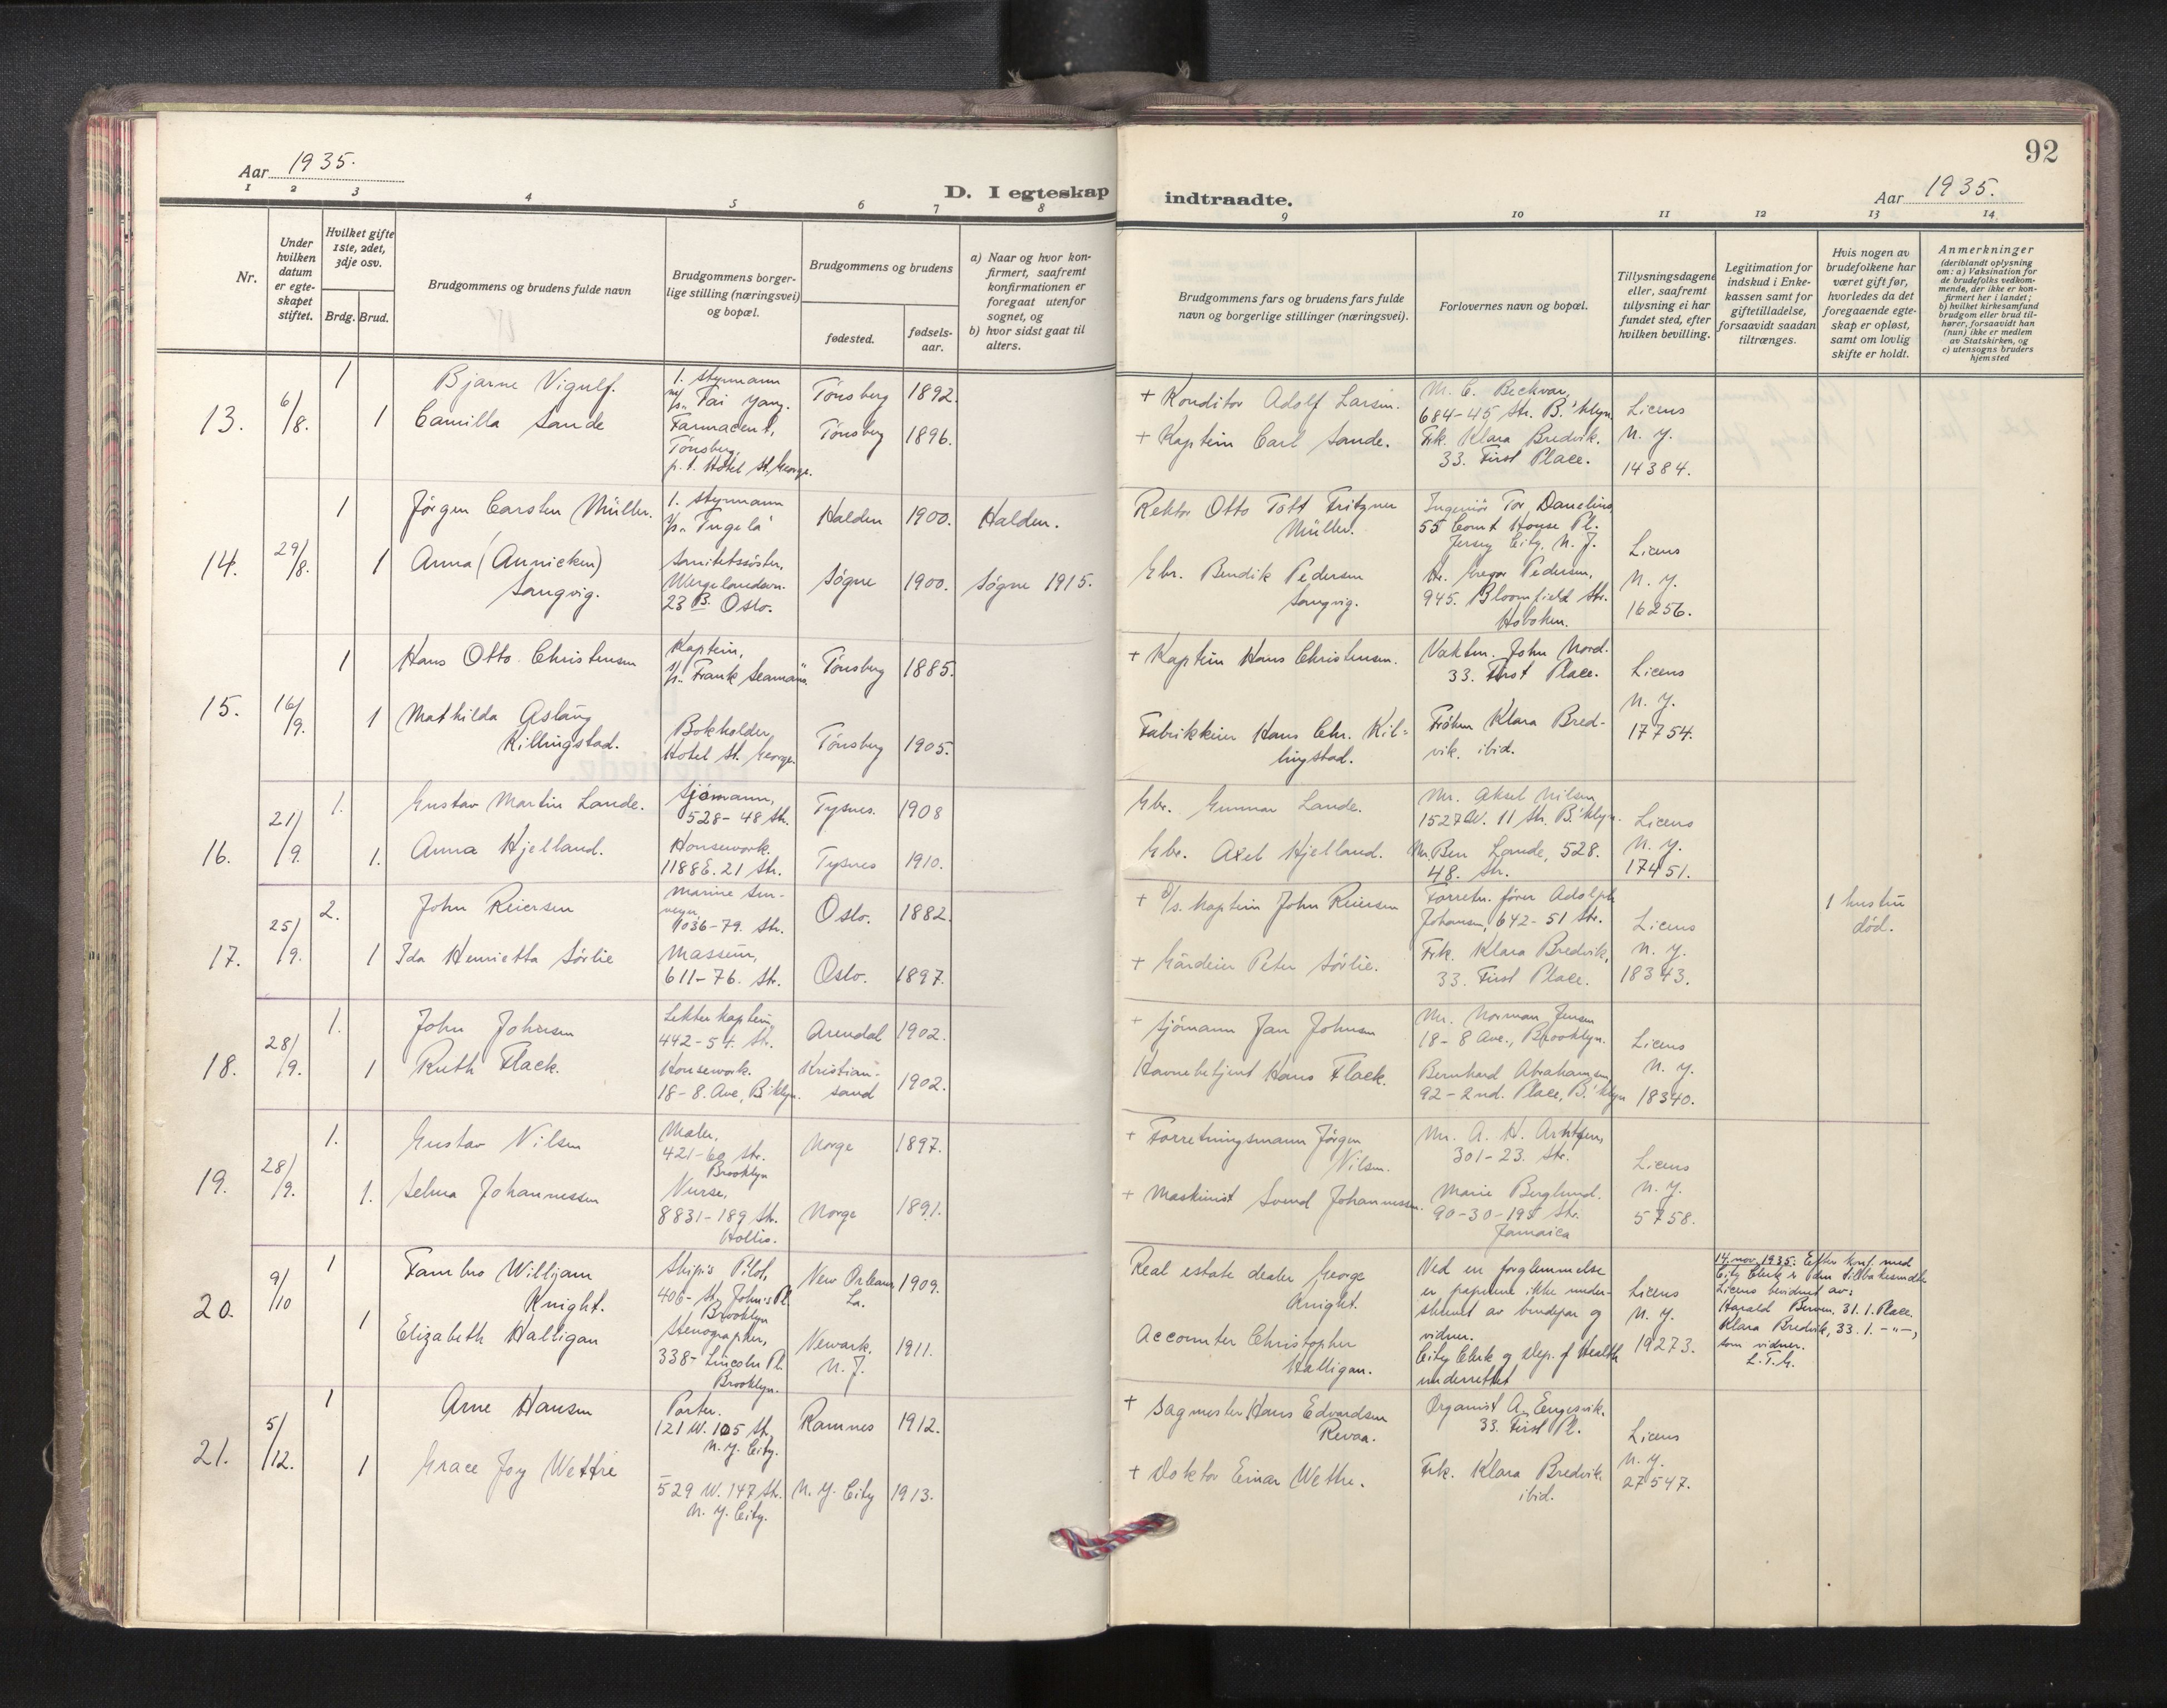 92
Aar 1935.
D. I egteskap indtraadte.
Aar 1935.
1 2 3 4 5 6 7 8 9 10 11 12 13 14
Nr.
Under hvilken datum er egte-skapet stiftet.
Hvilket gifte 1ste, 2det, 3dje osv.
Brdg. Brud.
Brudgommens og brudens fulde navn
Brudgommens borger-lige stilling (næringsvei) og bopæl.
Brudgommens og brudens
fødested.
fødsels-aar.
a) Naar og hvor kon-firmert, saafremt konfirmationen er foregaat utenfor sognet, og
b) hvor sidst gaat til alters.
Brudgommens fars og brudens fars fulde navn og borgerlige stillinger (næringsvei).
Forlovernes navn og bopæl.
Tillysningsdagene eller, saafremt tillysning ei har fundet sted, efter hvilken bevilling.
Legitimation for indskud i Enke-kassen samt for giftetilladelse, forsaavidt saadan tiltrænges.
Hvis nogen av brudefolkene har været gift før, hvorledes da det foregaaende egte-skap er opløst, samt om lovlig skifte er holdt.
Anmerkninger
(deriblandt oplysning om: a) Vaksination for de brudefolks vedkom-mende, der ikke er kon-firmert her i landet;
b) hvilket kirkesamfund brudgom eller brud til-hører, forsaavidt han (hun) ikke er medlem av Statskirken, og
c) utensogns bruders hjemsted
13. 6/8.
1 Bjarne Vigulf.
1. styrmann
m/s „Tai Yang.
Tønsberg 1892.
+ Konditor Adolf Larsen.
M. C. Beckvar,
684-45 Str. B.'klyn.
1 Camilla Sande
Farmaceut,
Tønsberg,
p.t. Hotel St. George.
Tønsberg 1896.
+ Kaptein Carl Sande.
Frk. Klara Bredvik.
33. First Place.
Licens
N. Y.
14384.
14. 29/8.
1 Jörgen Carsten Müller.
1. styrmann
"Tugela"
Halden 1900. Halden.
Rektor Otto Tott Fritzner
Müller.
Ingeniör Tor Danelius
55 Court House Pl.
Jersey City, N. J.
1 Anna (Annicken)
Sangvig.
Sanitetssöster,
Wergelandsvn.
23 B. Oslo.
Søgne 1900. Søgne 1915.
Gbr. Bendik Pedersen
Sangvig.
Hr. Gregor Pedersen,
945. Bloomfield Str.
Hoboken.
Licens
N. Y.
16256.
15. 16/9.
1 Hans Otto Christensen
Kaptein,
"Frank Seamans"
Tönsberg 1885.
+ Kaptein Hans Christensen.
Vaktm. John Nord.
33. First Place.
1 Mathilda Aslaug
Killingstad.
Bokholder,
Hotel St. George
Tönsberg 1905.
Fabrikkeier Hans Chr. Kil=
lingstad.
Fröken Klara Bred-
vik. ibid.
Licens
N. Y.
17754.
16. 21/9.
1. Gustav Martin Lande.
Sjömann,
528-48 Str.
Tysnes. 1908
Gbr. Gunnar Lande.
Mr. Aksel Nilsen
1527 W. 11 Str. B.'klyn.
1. Anna Hjelland.
Housework.
1188 E. 21 Str.
Tysnes 1910.
Gbr. Axel Hjelland.
Mr. Ben Lande, 528.
48. Str.
Licens
N. Y.
17451.
17. 25/9.
2. John Reiersen
Marine Sur-
veyor,
1036-79. Str.
Oslo. 1882.
+ D/s. Kaptein John Reiersen
Forretn. förer Adolph
Johansen, 642-51 Str.
1 hustru
död.
1 Ida Henrietta Sörlie
Masseur,
611-76. Str.
Oslo. 1897.
+ Gårdeier Peter Sörlie.
Frk. Klara Bredvik,
33. First Place.
Licens
N. Y.
18343.
18. 28/9.
1. John Johnsen
Lekter kaptein,
442-54. Str.
Arendal 1902.
+ Sjömann Jan Johnsen
Mr. Norman Jensen
18-8 Ave., Brooklyn.
1 Ruth Flack.
Housework.
18-8. Ave, B'klyn.
Kristian-
sand 1902.
Havnebetjent Hans Flack.
Bernhard Abrahamsen
92-2nd. Place, B.'klyn
Licens
N. Y.
18340.
19. 28/9.
1. Gustav Nilsen
Maler,
421-60 Str.
Brooklyn
Norge 1897.
+ Forretningsmann Jörgen
Nilsen.
Mr. A. H. Arntzen,
301-23. Str.
1. Selma Johannessen
Nurse,
8831-189 Str.
Hollis.
Norge 1891.
+ Maskinist Svend Johannessen.
Marie Berglund.
90-30-195 Str.
Jamaica
Licens
N. Y.
5758.
20. 9/10
1 Fambro Willjam
Knight.
Ship's Pilot,
406- St. John's Pl.
Brooklyn
New Orleans,
La. 1909.
Real estate dealer George
Knight.
Ved en forglemmelse
er papirene ikke under-
skrevet av brudepar og
vidner.
City Clerk og Dep. of Health
underrettet
1 Elizabeth Halligan
Stenographer,
338- Lincoln Pl.
Brooklyn.
Newark.
N. J. 1911.
Accounter Christopher
Halligan.
Licens
N. Y.
19273.
14. nov. 1935. Efter konf. med
City Clerk er den tilbakesendte
Licens bevidnet av:
Harald Berven, 31. 1. Place.
Klara Bredvik, 33. 1. -"-,
som vidner.
21. 5/12.
1 Arne Hansen
Porter.
121 W. 105 St.
N. Y. City.
Ramnes 1912.
+ Sagmester Hans Edvardsen
Revaa.
Organist A. Engesvik.
33. First Pl.
1 Grace Joy Wettre
529 W. 147 Str.
N. Y. City.
N. Y. City 1913.
+ Doktor Einar Wettre.
Frk. Klara Bredvik
ibid.
Licens
N. Y.
27547.